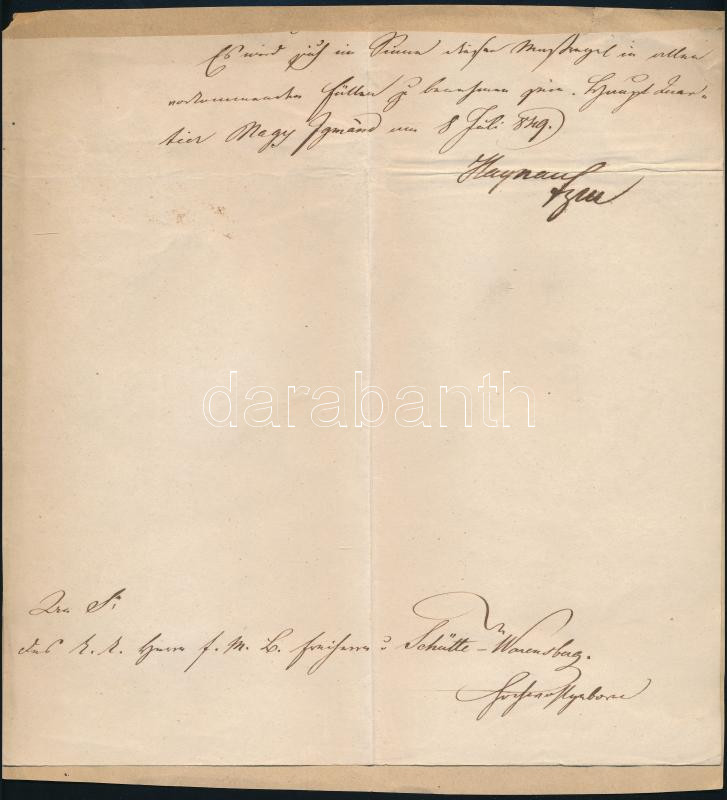 Es wird sich im Sinne dieser Maßregel in allen
vorkommenden Fällen zu benehmen sein. Haupt Quar-
tier Nagy Igmánd am 8 Juli 849.
Haynau
FZM
darabanth
An Sr
des K. K. Herrn F. M. L. Freiherrn v Schütte-Warensberg.
Hochwohlgeboren